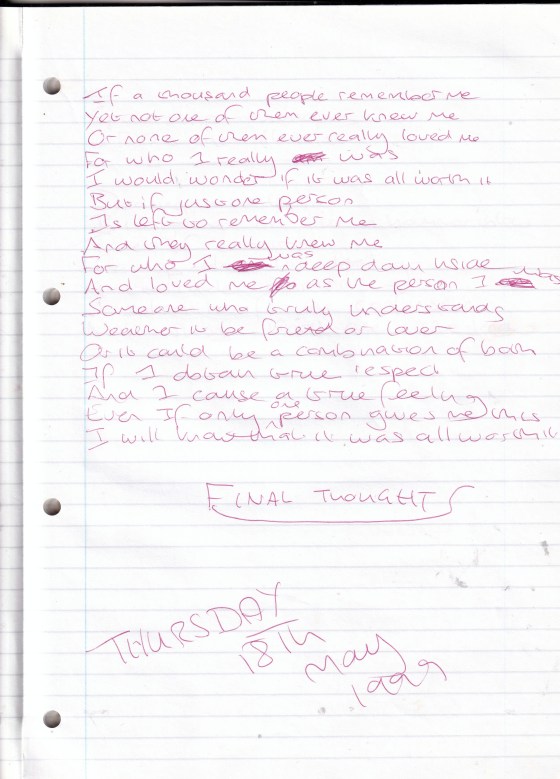 If a thousand people remember me
Yet not one of them ever knew me
Or none of them ever really loved me
For who I really was
I would wonder if it was all worth it
But if just one person
Is left to remember me
And they really knew me
For who I was deep down inside
And loved me as the person I was
Someone who truly understands
Weather it be friend or lover
Or it could be a combination of both
If I obtain true respect
And I cause a true feeling
Even If only one person gives me this
I will know that it was all worth it
FINAL THOUGHTS
THURSDAY
18TH
May
1999